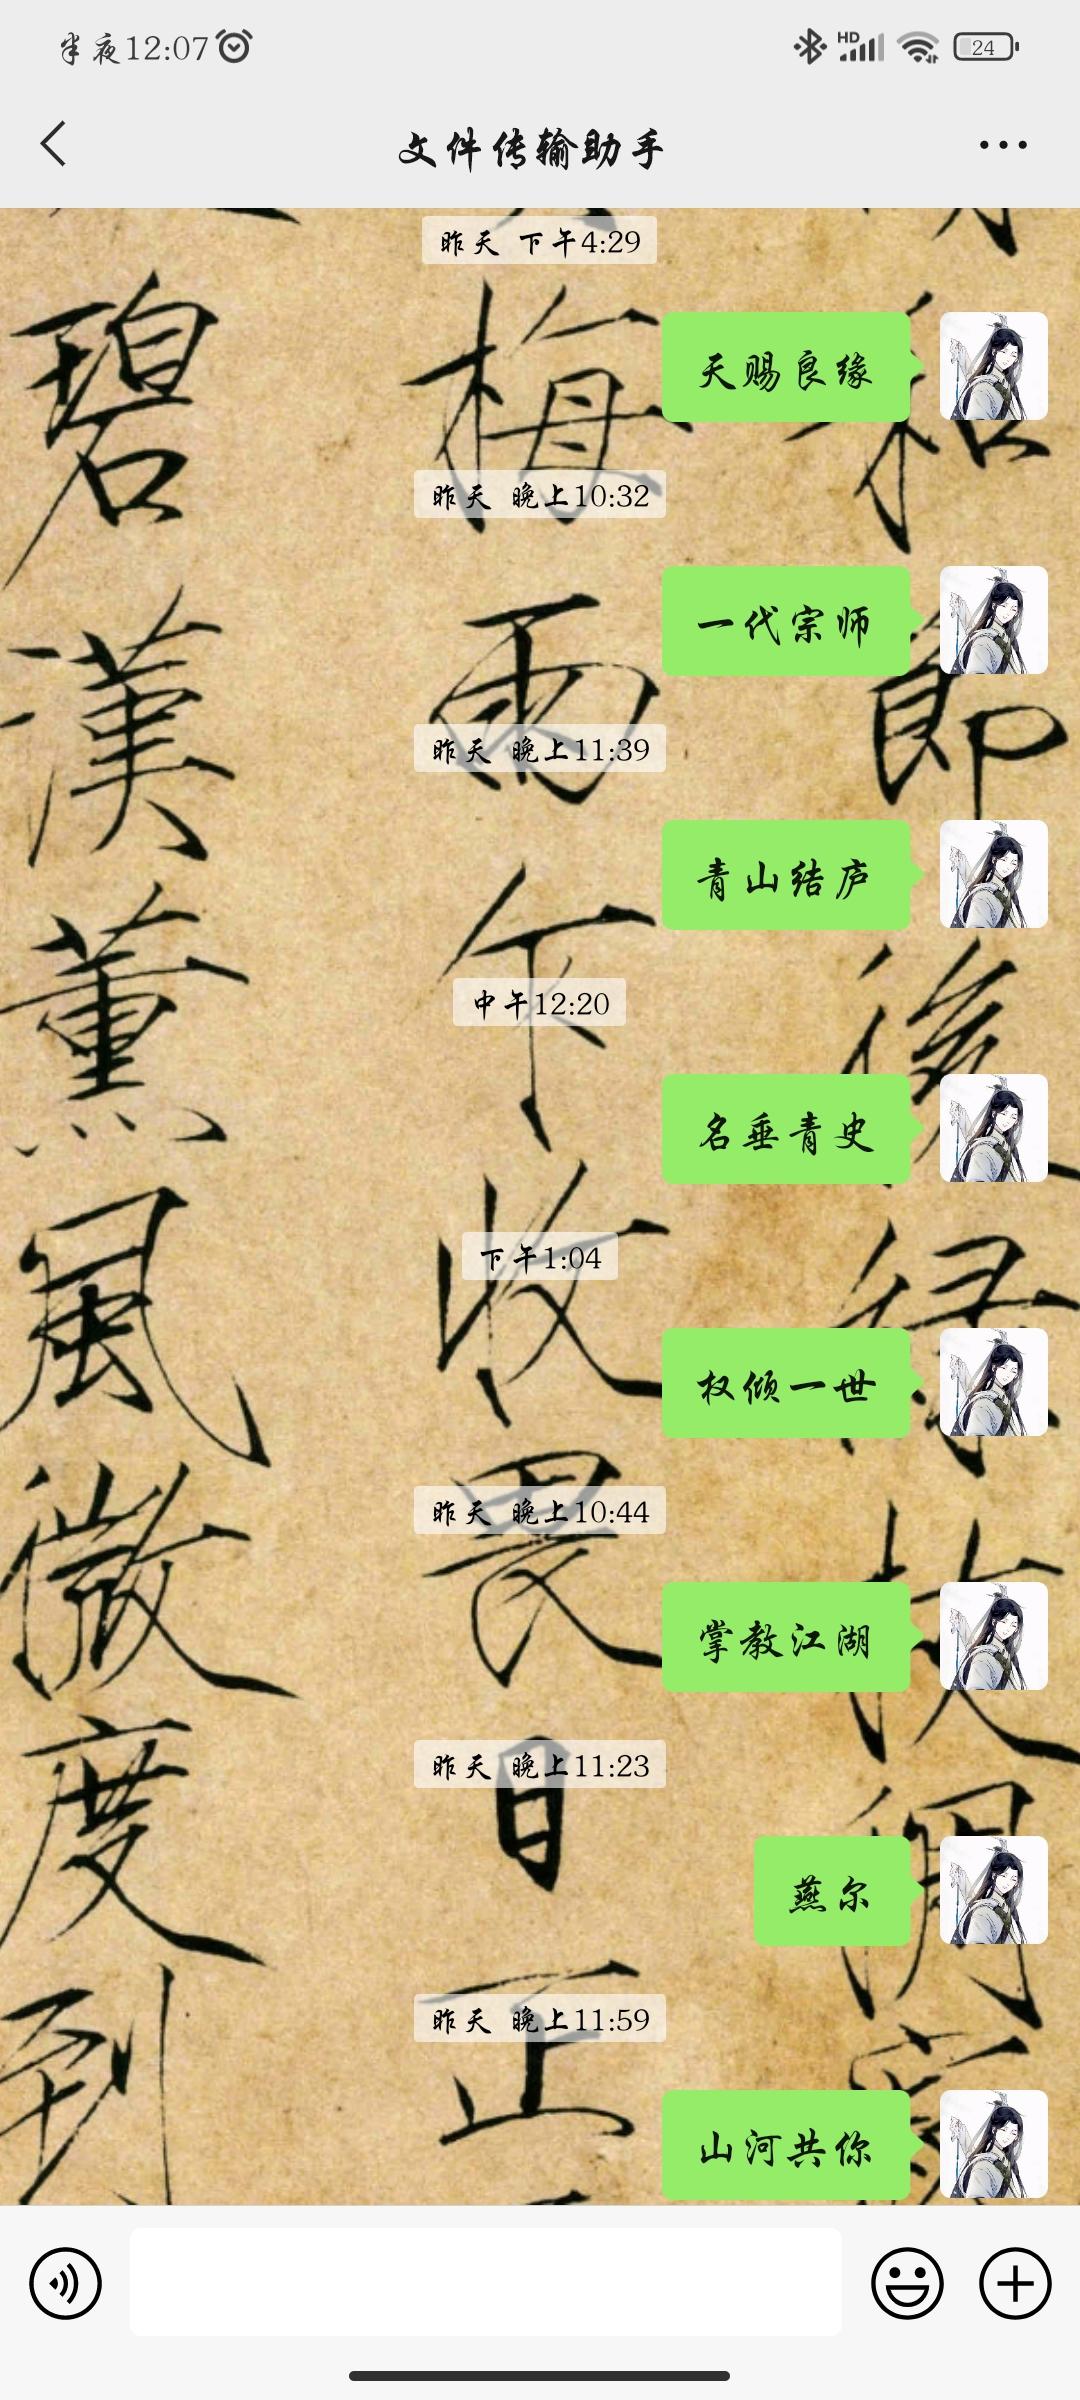 半夜12:07
HD
24
文件传输助手
昨天 下午4:29
天赐良缘
昨天 晚上10:32
一代宗师
昨天 晚上11:39
青山结庐
中午12:20
名垂青史
下午1:04
权倾一世
昨天 晚上10:44
掌教江湖
昨天 晚上11:23
燕尔
昨天 晚上11:59
山河共你
碧
漢
薰
風
微
度
到
梅
雨
乍
收
畏
日
正
和
節
後
緑
枝
稠